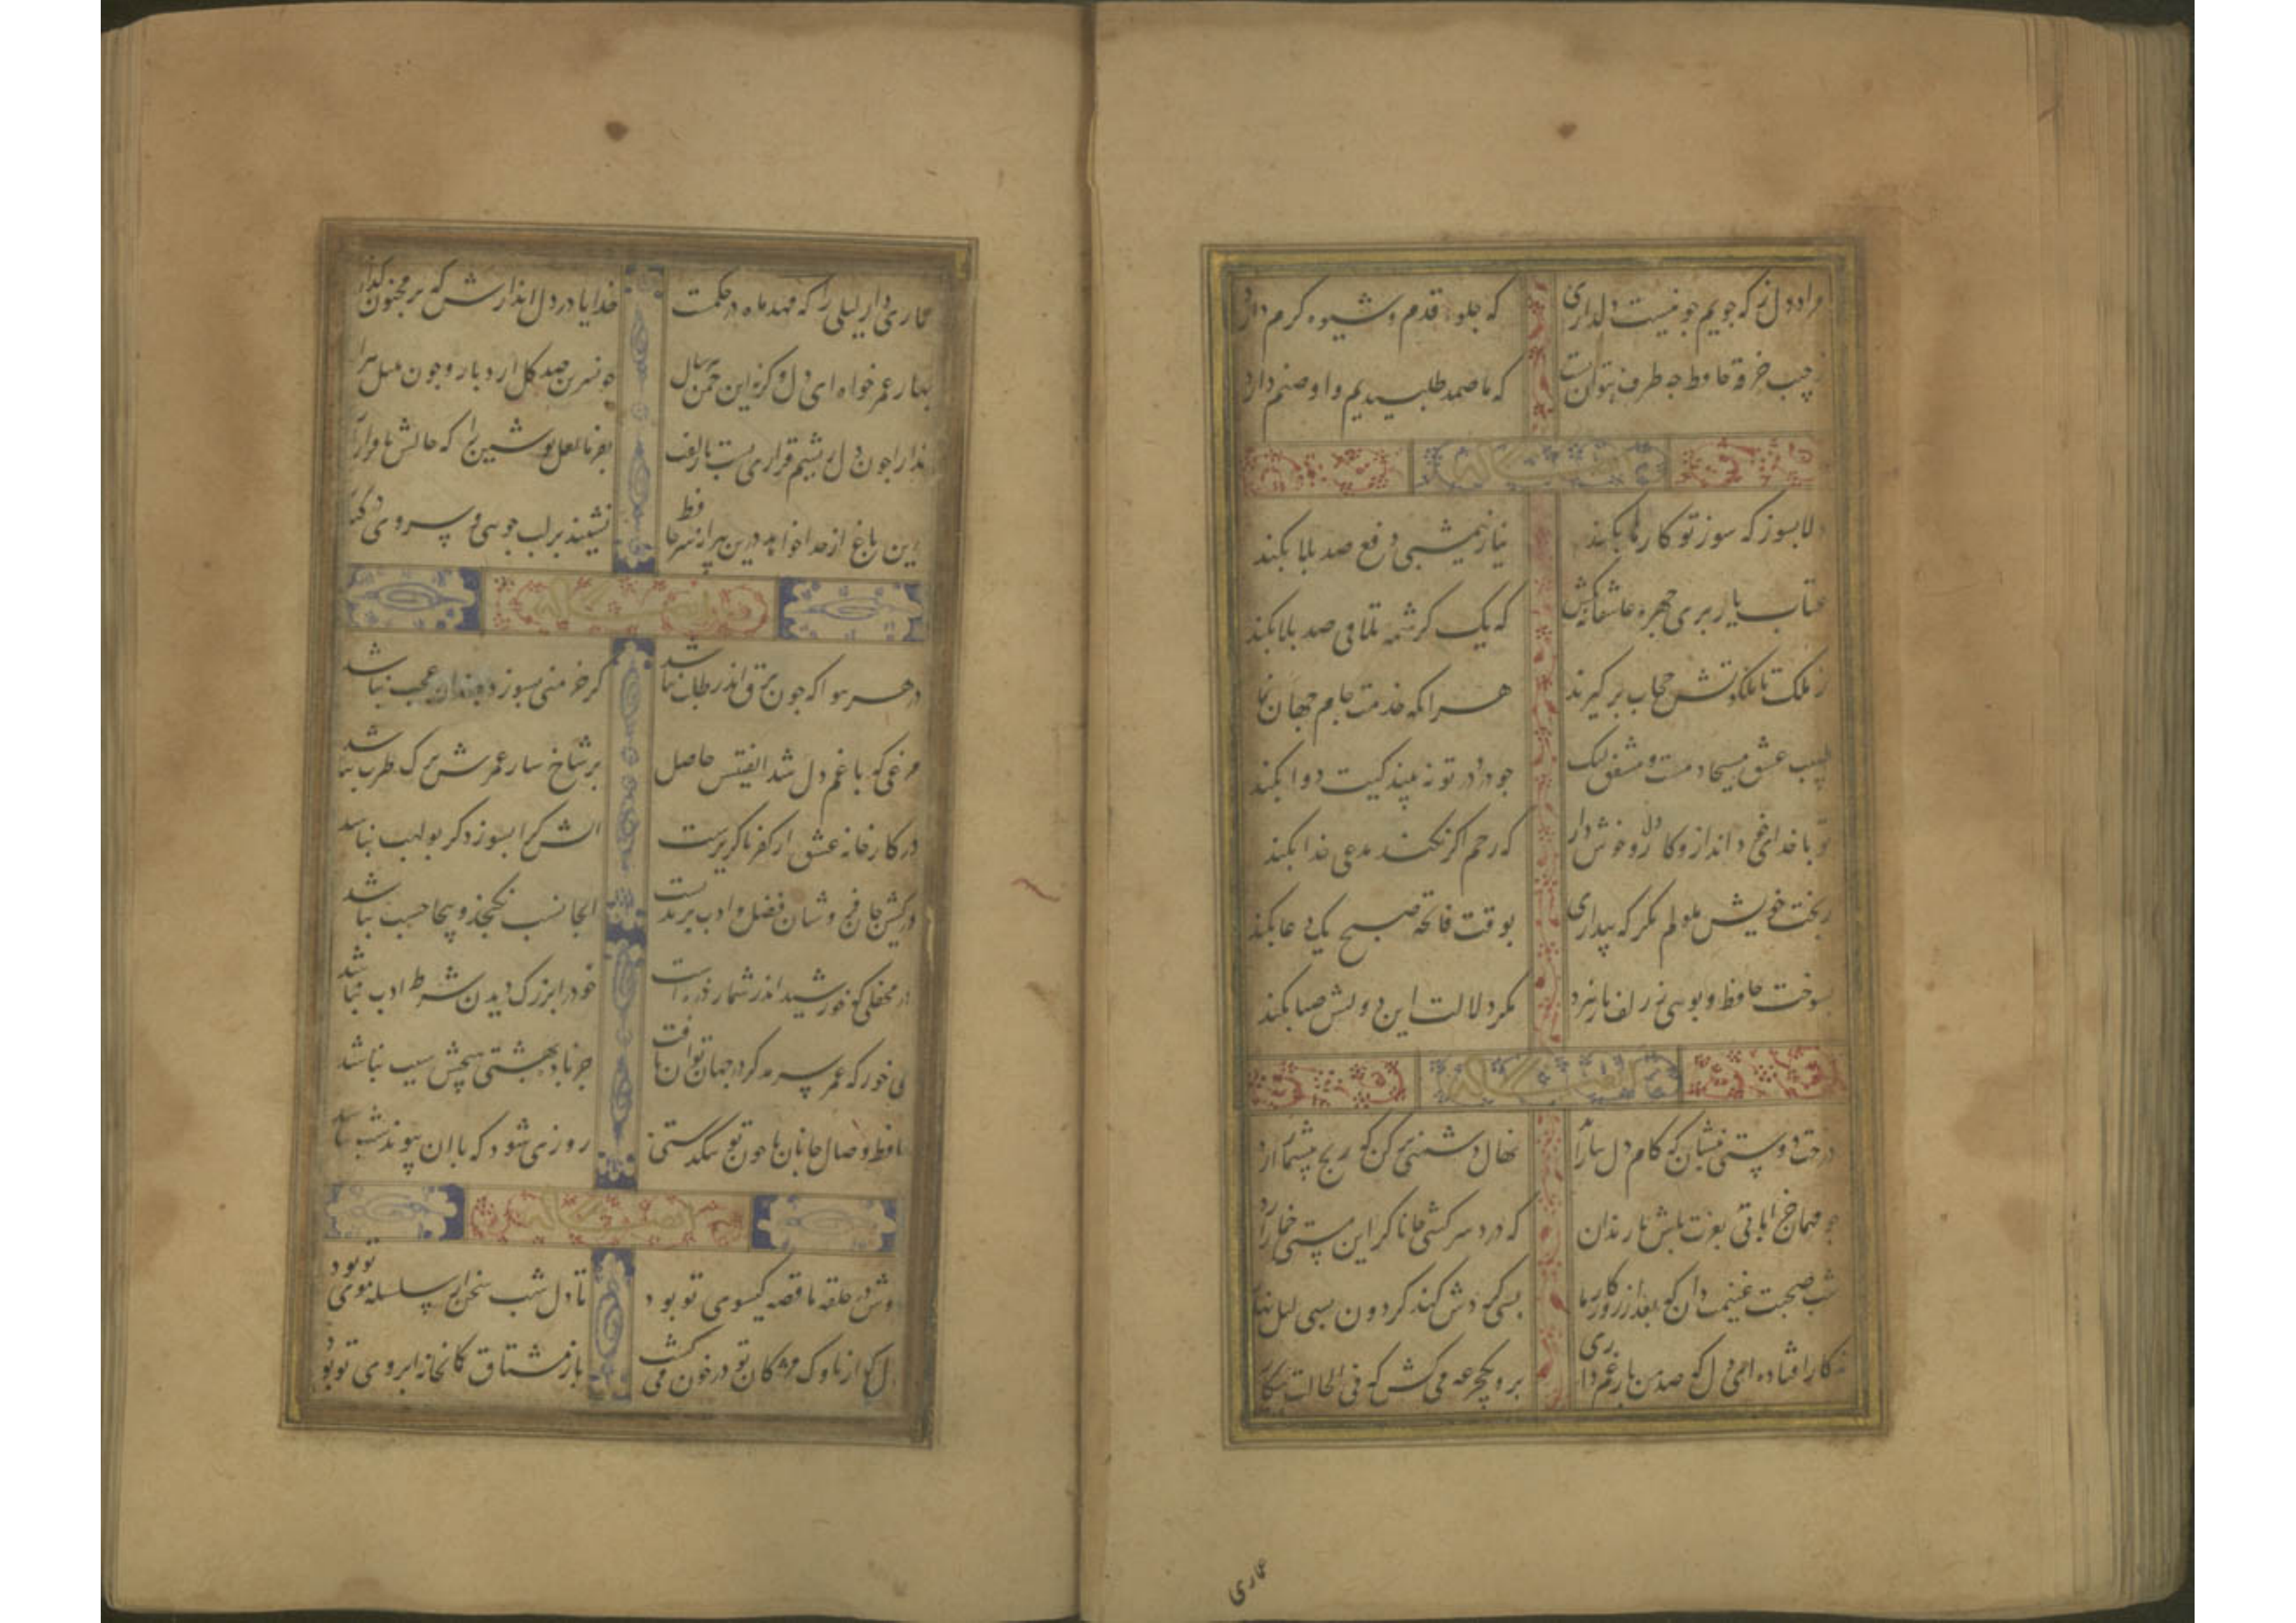 مراد دل ز که جویم چو نیست دلداری که جلوه قدم و شیوه کرم دارد
ز جیب خرقه حافظ چه طرف بتوان بست که ما صمد طلبیدیم و او صنم دارد
دلا بسوز که سوز تو کارها بکند نیاز نیمشبی دفع صد بلا بکند
عتاب یار پری چهره عاشقانه بکش که یک کرشمه تلافی صد بلا بکند
ز ملک تا ملکوتش حجاب برگیرند هر انکه خدمت جام جهان نما
طبیب عشق مسیحا دمست و مشفق لیک چو درد در تو نه بیند کیت دوا بکند
تو با خدای خود انداز و کار دل خوش دار که رحم اگر نکند مدعی خدا بکند
ز بخت خویش ملولم مگر که بیداری بوقت فاتحه صبح یک دعا بکند
بسوخت حافظ و بویی ز زلف یار نبرد مگر دلالت این دولتش صبا بکند
درخت دوستی بنشان که کام دل ببار آرد نهال دشمنی برکن که رنج بیشمار آرد
چو مهمان خراباتی بعزت باش با رندان که درد سر کشی جانا گر این مستی خمار آرد
شب صحبت غنیمت دان که بعد از روزگار ما بسی گردش کند گردون بسی لیل نهار
ز کار افتاده ای دل که صد من بار غم داری برو یکجرعه می کش که فی الحالت بکار
عماری
عماری دار لیلی را که مهد ماه در حکمت خدایا در دل اندازش که بر مجنون گذار
بهار عمر خواه ای دل وگرنه این چمن هر سال چو نسرین صد گل ارد بار و چون بلبل هزار
خدارا چون دل ریشم قراری بست با زلفت بفرما لعل نوشین را که حالش با قرار آرد
درین باغ از خدا خواهد درین پیرانه سر حافظ نشیند بر لب جویی و سروی در کنار
در هر هوا که چون برق اندر طلب نباشد گر خرمنی بسوزد چندان عجب نباشد
مرغی که با غم دل شد الفتیش حاصل بر شاخسار عمرش برگ طرب نباشد
در کارخانه عشق از کفر ناگزیرست اتش کرا بسوزد گر بولهب نباشد
در کیش جان فروشان فضل و ادب برندیست انجا نسب نگنجد و اینجا حسب نباشد
در محفلی که خورشید اندر شمار ذره است خود را بزرگ دیدن شرط ادب نباشد
می خور که عمر سرمد گر در جهان توان یافت جز باده بهشتی هیچش سبب نباشد
حافظ وصال جانان با چون تو تنگدستی روزی شود که با ان پیوند شب نباشد
دوش در حلقه ما قصه گیسوی تو بود تا دل شب سخن از سلسله موی تو بود
دل که از ناوک مژگان تو در خون می گشت باز مشتاق کمانخانه ابروی تو بود